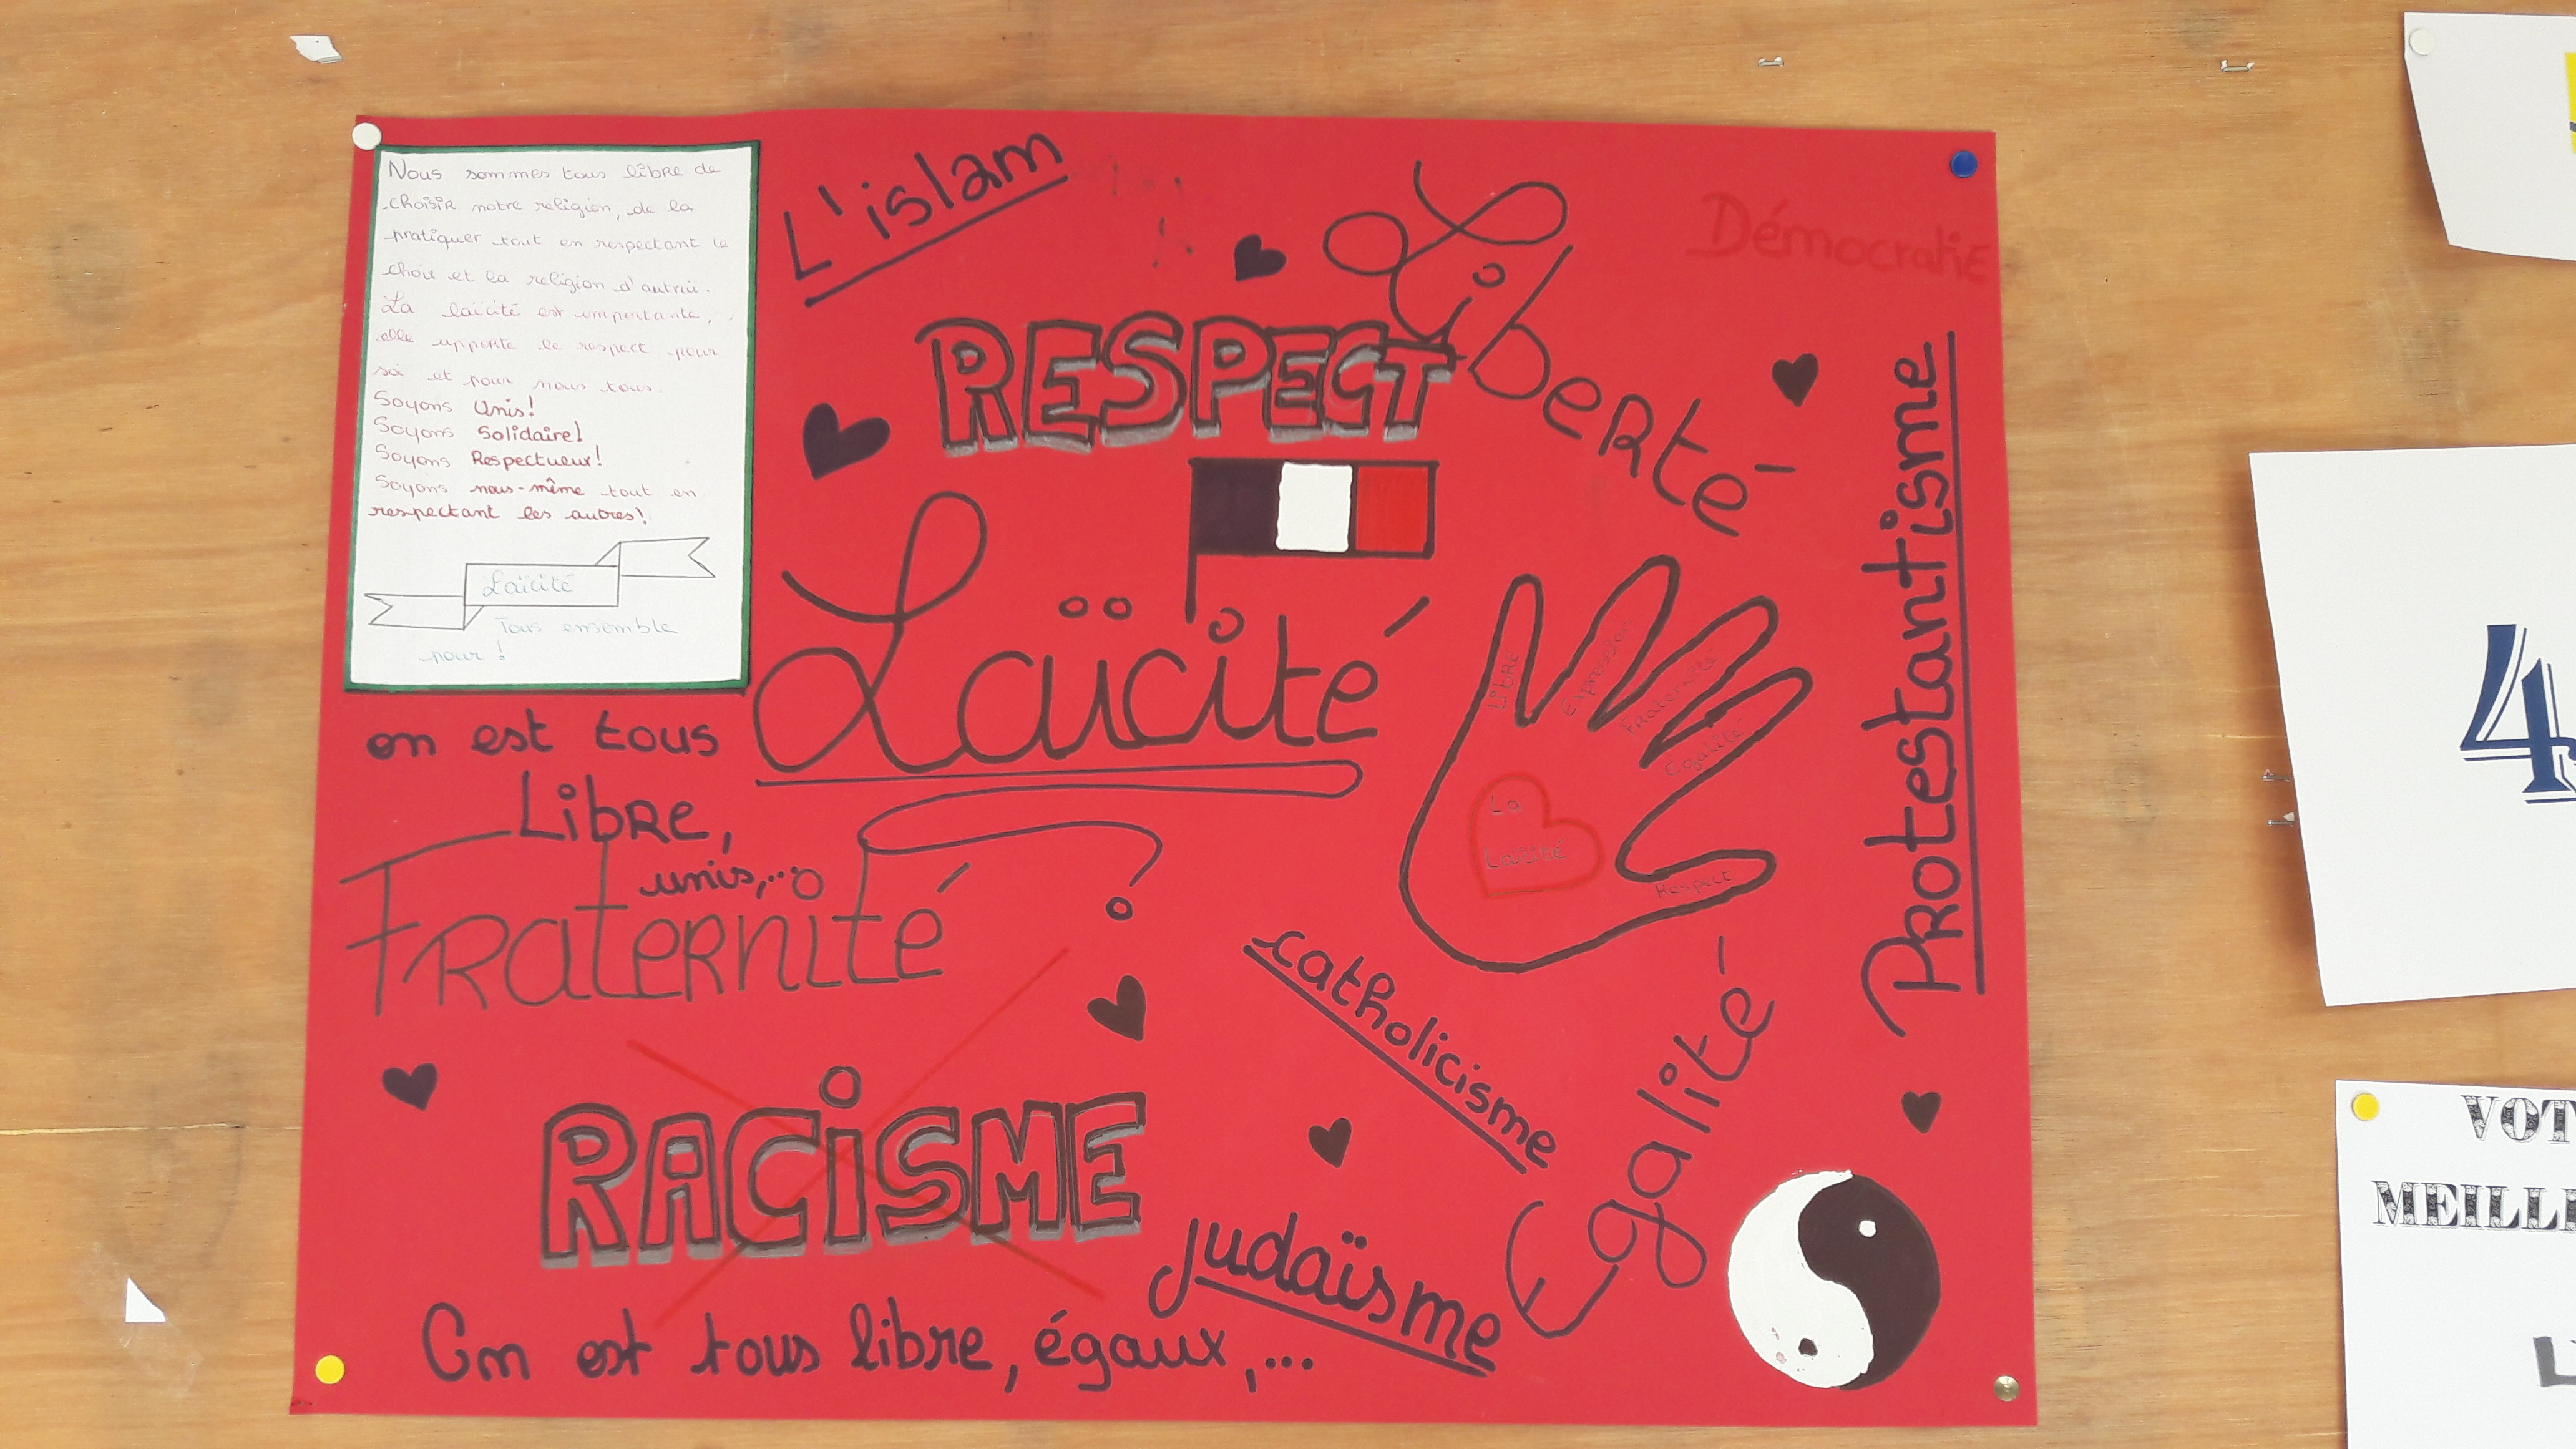 Nous sommes tous libre de
choisir notre religion, de la
pratiquer tout en respectant le
choix et la religion d'autrui.
La laïcité est importante,
elle apporte le respect pour
soi et pour nous tous.
Soyons Unis!
Soyons Solidaire!
Soyons Respectueux!
Soyons nous-même tout en
respectant les autres!
Laïcité
Tous ensemble
pour !
L'islam
RESPECT
Liberté
Démocratie
Protestantisme
Laïcité
on est tous
Libre,
unis,...
Fraternité
Libre
Expression
Fraternité
Egalité
Respect
La
Laïcité
catholicisme
Egalité
RACiSME
judaïsme
On est tous libre, égaux,...
4
VOT
MEILL